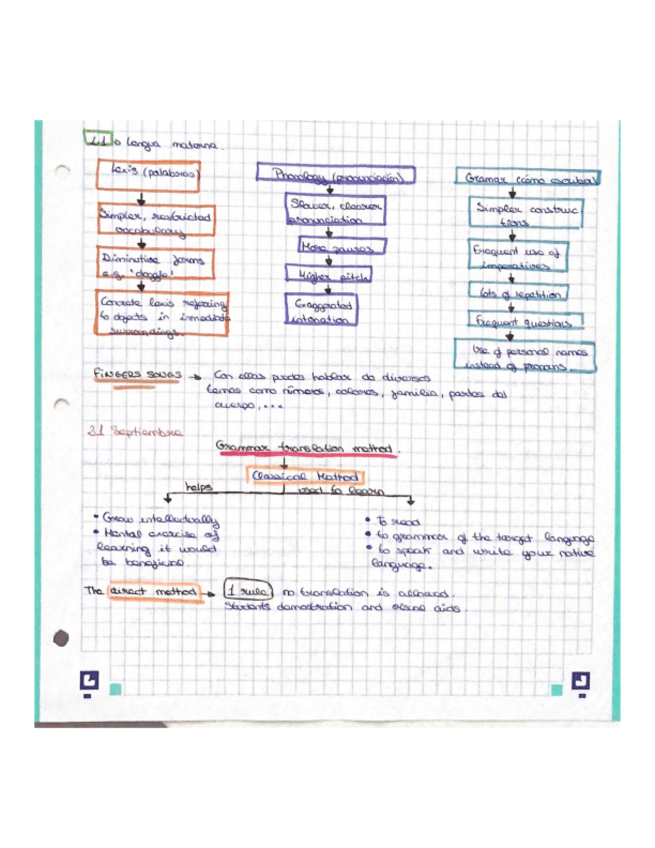 L1 o lengua materna.
Lexis (palabras)
Simpler, restricted
vocabulary
Diminutive forms
e.g. 'doggie'
Concrete lexis refering
to objects in inmediate
surroundings.
Phonology (pronunciación)
Slower, clearer
pronunciation
More pauses
Higher pitch
Exaggerated
intonation
Gramar (cómo escriba)
Simpler construc
tions
Frequent use of
imperatives
lots of repetition
Frequent questions
Use of personal names
instead of pronouns.
FINGERS SONGS → Con ellas puedes hablar de diversos
temas como números, colores, familia, partes del
cuerpo,...
21 Septiembre
Grammar translation method.
Classical Method
helps
used to learn
• Grow intellectually
• Mental exercise of
learning it would
be beneficial
• To read
• to grammar of the target language
• to speak and write your native
language.
The direct method → 1 rule no translation is allowed.
Students demostration and visual aids.